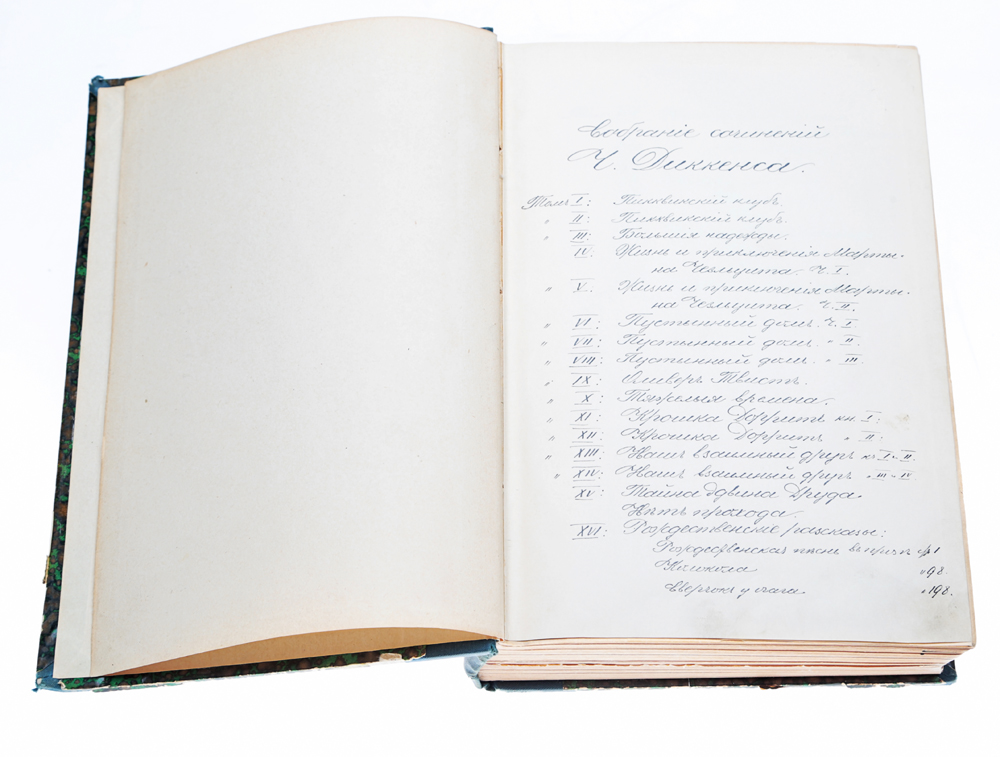 Собраніе сочиненій
Ч. Диккенса.
Томъ I: Пиквикскій клубъ
" II: Пиквикскій клубъ.
" III: Большія надежды.
IV: Жизнь и приключенія Марти-
на Чезльуита. Ч. I.
" V: Жизнь и приключенія Марти-
на Чезльуита. Ч. II.
" VI: Пустынный домъ. Ч. I.
" VII: Пустынный домъ. " II.
" VIII: Пустынный домъ. " III.
" IX: Оливеръ Твистъ.
" X: Тяжелыя времена.
" XI: Крошка Дорритъ кн. I:
" XII: Крошка Дорритъ " II:
" XIII: Нашъ взаимный другъ кн. I и II.
" XIV: Нашъ взаимный другъ " III и IV.
XV: Тайна Эдвина Друда.
Нѣтъ прохода.
XVI: Рождественскіе разсказы:
Рождественская пѣснь въ прозѣ стр. 1
Колокола " 98.
Сверчокъ у очага " 198.